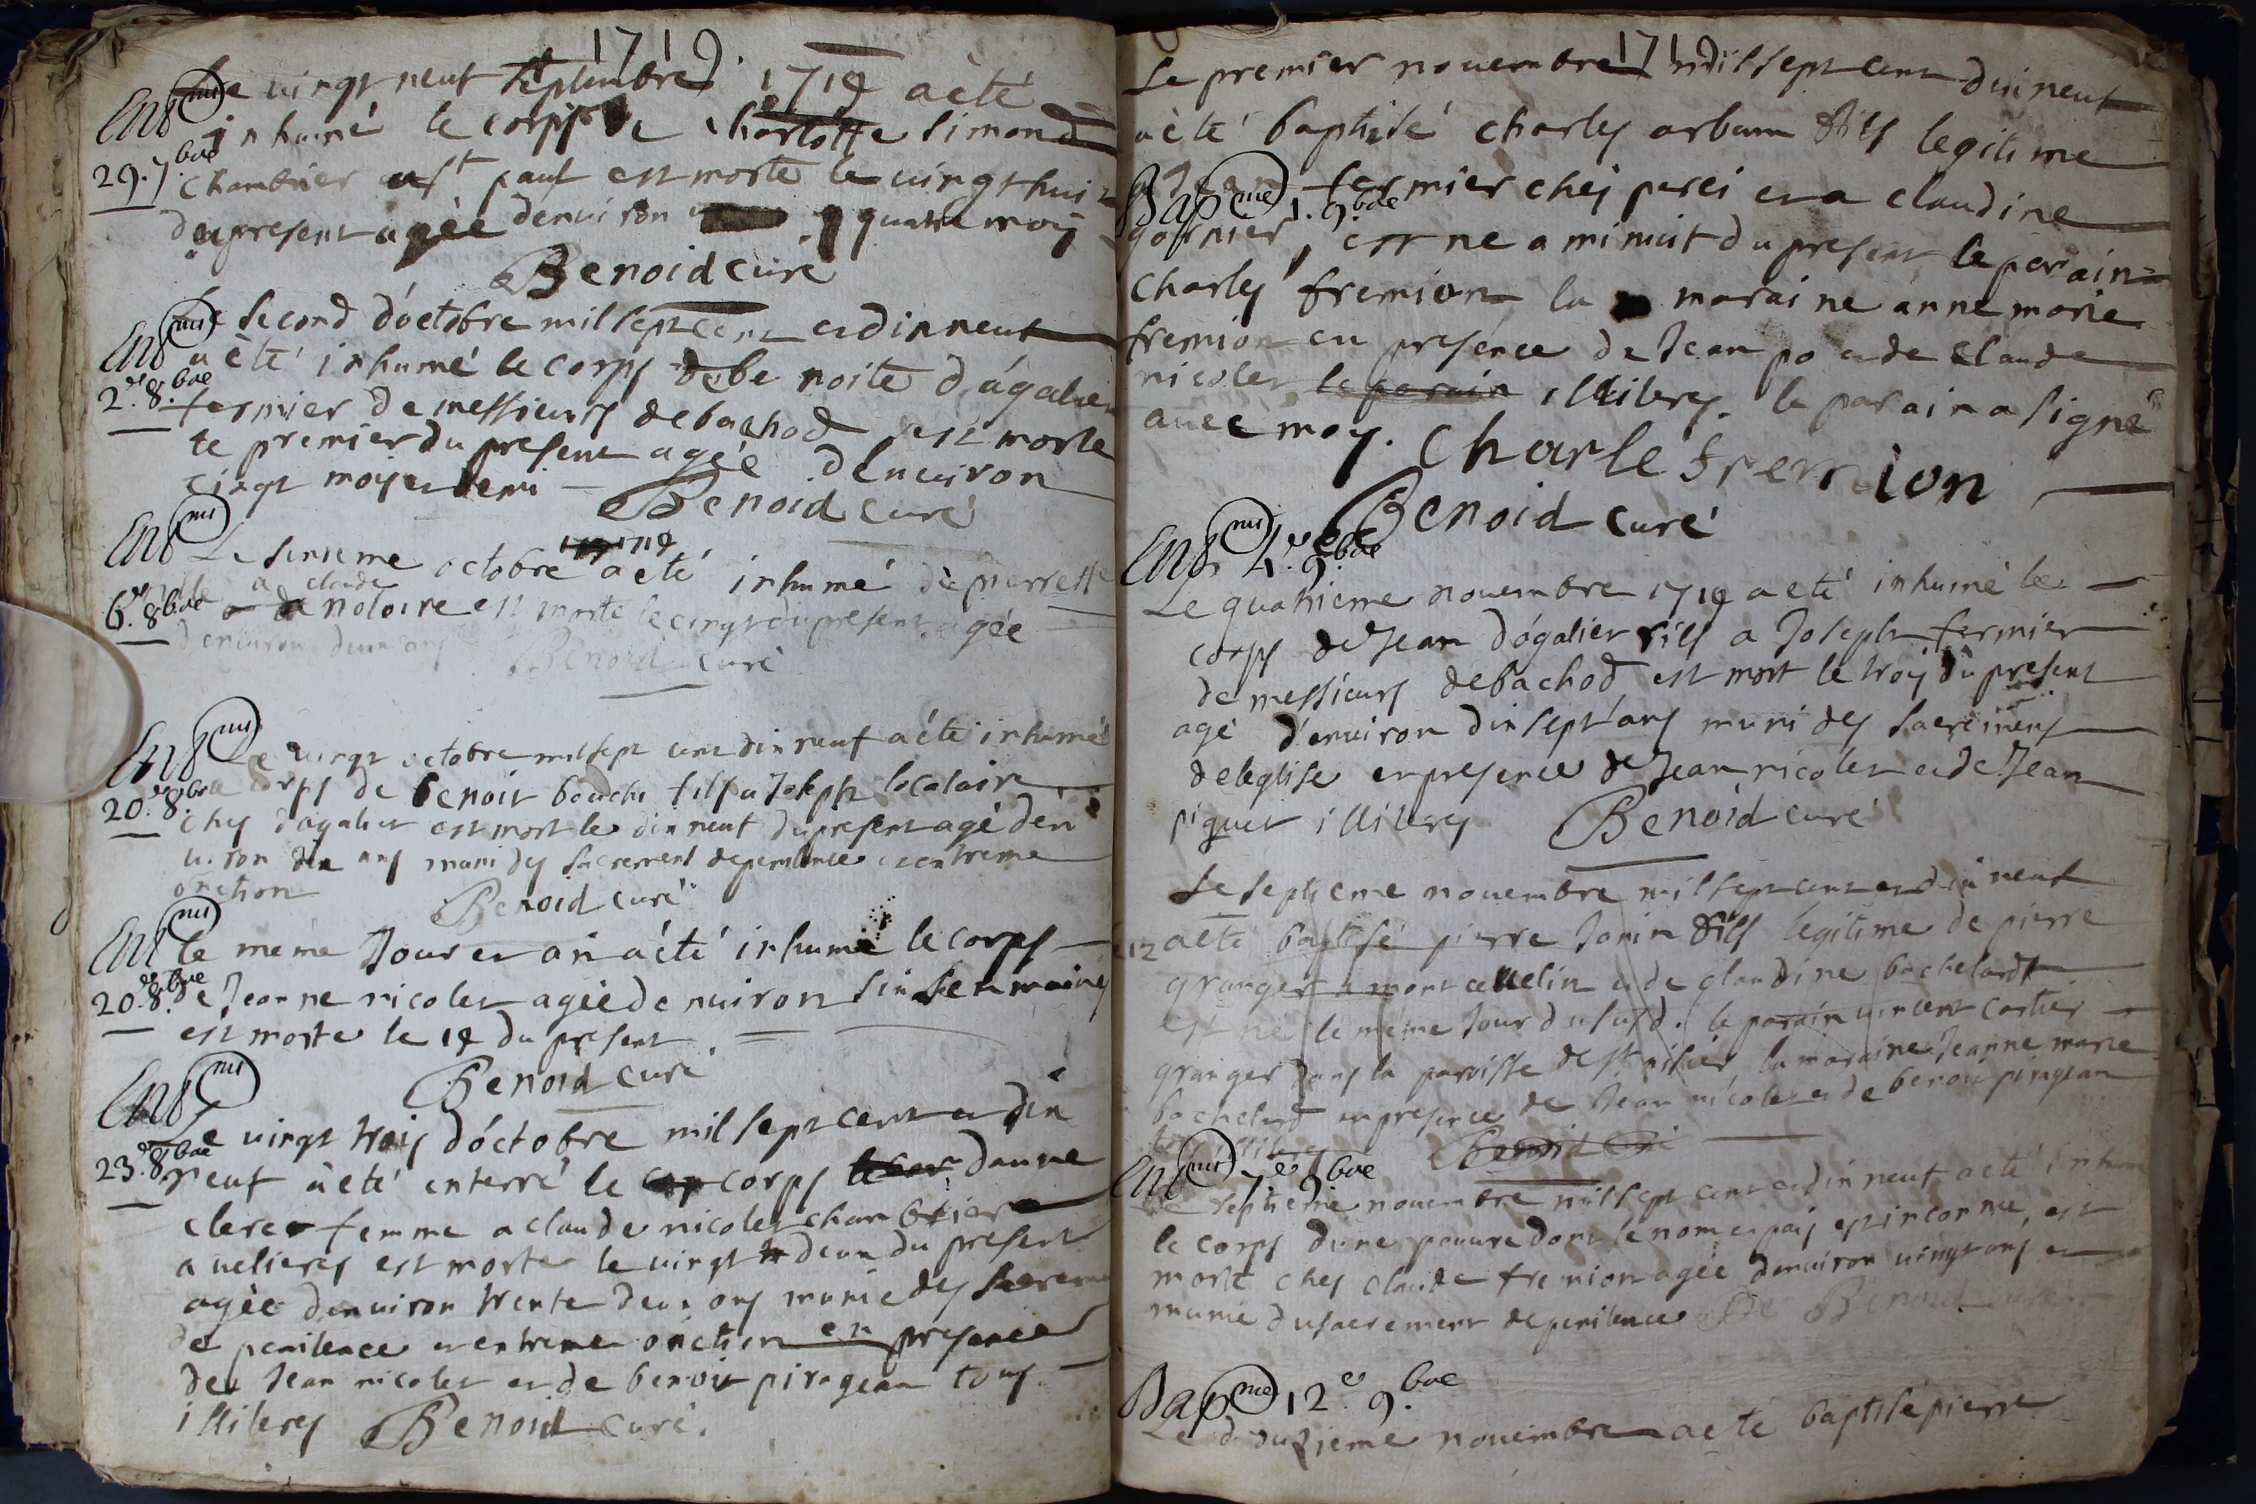 1719.
Le vingt neuf septembre 1719 a èté
Ent(mt)
inhumé le corps de charlotte simond
29. 7.bre
chambrier a st paul est morte le vingt huit
du present agèe denuiron quatre moys
Benoid curé
Ent(mt)
Le second d'óctobre mil sept cent et dix neuf
a èté inhumé le corps de be noite d'ágalier
2.e 8.bre
fermier de messieurs debachod est morte
le premier du present agée denuiron
cinqt moys et demi Benoid curé
Ent(mt)
Le sixieme octobre 1719 a eté inhumé pierrette
6.e 8bre
a claude notoire est morte le cinqt du present agée
denuiron deux ans Benoid curé
Ent(mt)
Le vingt octobre mil sept cent dix neuf a èté inhumé
20.e 8bre
le corps de benoit bouchu fils a Joseph locatair
ches dagalier est mort le dix neuf du present agé den
uiron dix ans muni des sacrement de penitence et extreme
onction Benoid curé
Ent(mt)
le méme Jour et an a èté inhumé le corps
20.e 8.bre
de Jeanne nicolet agée denuiron six semaines
est morte le 19 du present
Benoid curé
Ent(mt)
Le vingt trois d'óctobre mil sept cent et dix
23.e 8.bre
neuf a èté enterré le corps danne
clerc femme a claude nicolet chambrier
a uelieres est morte le vingt deux du present
agèe denuiron trente deux ans munie des sacremen
de penitence et extreme onction en presence
de Jean nicolet et de benoit pirageau tous
illiteres Benoid curé.
1719
Le premier nouembre mil sept cent dix neuf
a èté baptisé charles arbam fils legitime
Bap(me) 1. 9.bre
fermier chez perci et a claudine
garnier, est ne a minuit du present le parain
charles fremion la maraine anne marie
fremion en presence de Jean po et de claude
nicolet le parain illiteres. le parain a signé
auec moy. Charle fremion
Benoid curé
Ent(mt) 4.e 9.bre
Le quatrieme nouembre 1719 a eté inhumé le
corps de Jean d'ógalier fils a Joseph fermier
de messieurs debachod est mort le troy du present
agé d'enuiron dix sept ans muni des sacremens
de leglise en presence de Jean nicolet et de Jean
piquet illiteres Benoid curé
Le septieme nouembre mil sept cent et dix neuf
12 a èté baptisé pierre Janin fils legitime de pierre
granger a mont cellelin et de claudine bachelard
est né le méme Jour du susd. le parain uincent cartier
granger dans la paroisse de st la maraine Jeanne marie
bachelard en presence de Jean nicolet et de benoit pirageau
Benoid curé
Ent(mt) 7.e 9.bre
Le septieme nouembre mil sept cent et dix neuf a eté inhumé
le corps dune pauure dont le nom et pais est inconnue, est
morte ches claude fremion agèe denuiron uingt ans et
munie du sacrement de penitence Benoid curé
Bap(me) 12.e 9.bre
Le douzieme nouembre a eté baptisé pierre